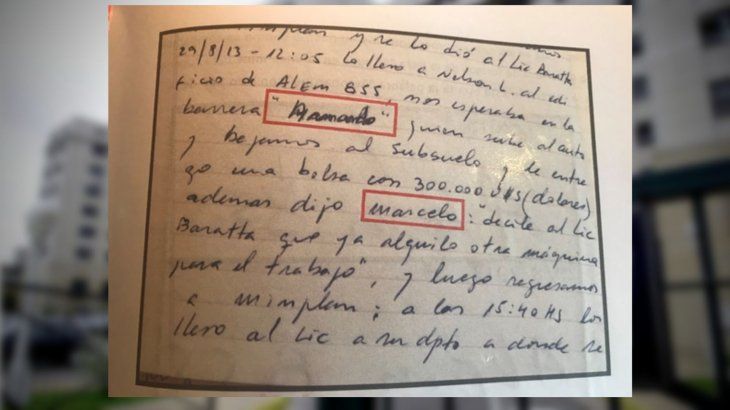 y se lo dió al Lic Baratta
29/8/13 - 12:05 lo llevo a Nelson L. al edi
ficio de ALEM 855, nos esperaba en la
barrera " " quien sube al auto
y bajamos al subsuelo y le entre
go una bolsa con 300.000 U$S (dolares)
ademas dijo Marcelo: "decile al Lic
Baratta que ya alquilo otra máquina
para el trabajo", y luego regresamos
a Minplan; a las 15:40 HS los
llevo al Lic a su dpto a donde se